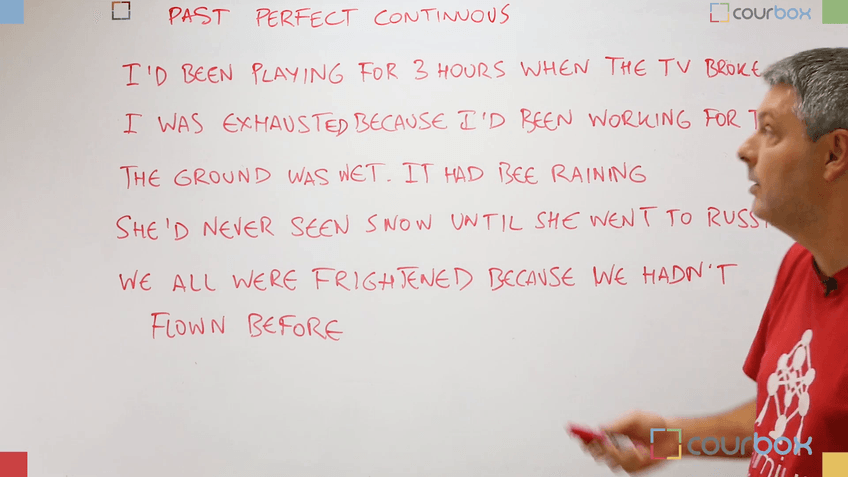 PAST PERFECT CONTINUOUS
courbox
I'D BEEN PLAYING FOR 3 HOURS WHEN THE TV BROKE
I WAS EXHAUSTED BECAUSE I'D BEEN WORKING FOR
THE GROUND WAS WET. IT HAD BEE RAINING
SHE'D NEVER SEEN SNOW UNTIL SHE WENT TO RUSS
WE ALL WERE FRIGHTENED BECAUSE WE HADN'T
FLOWN BEFORE
courbox